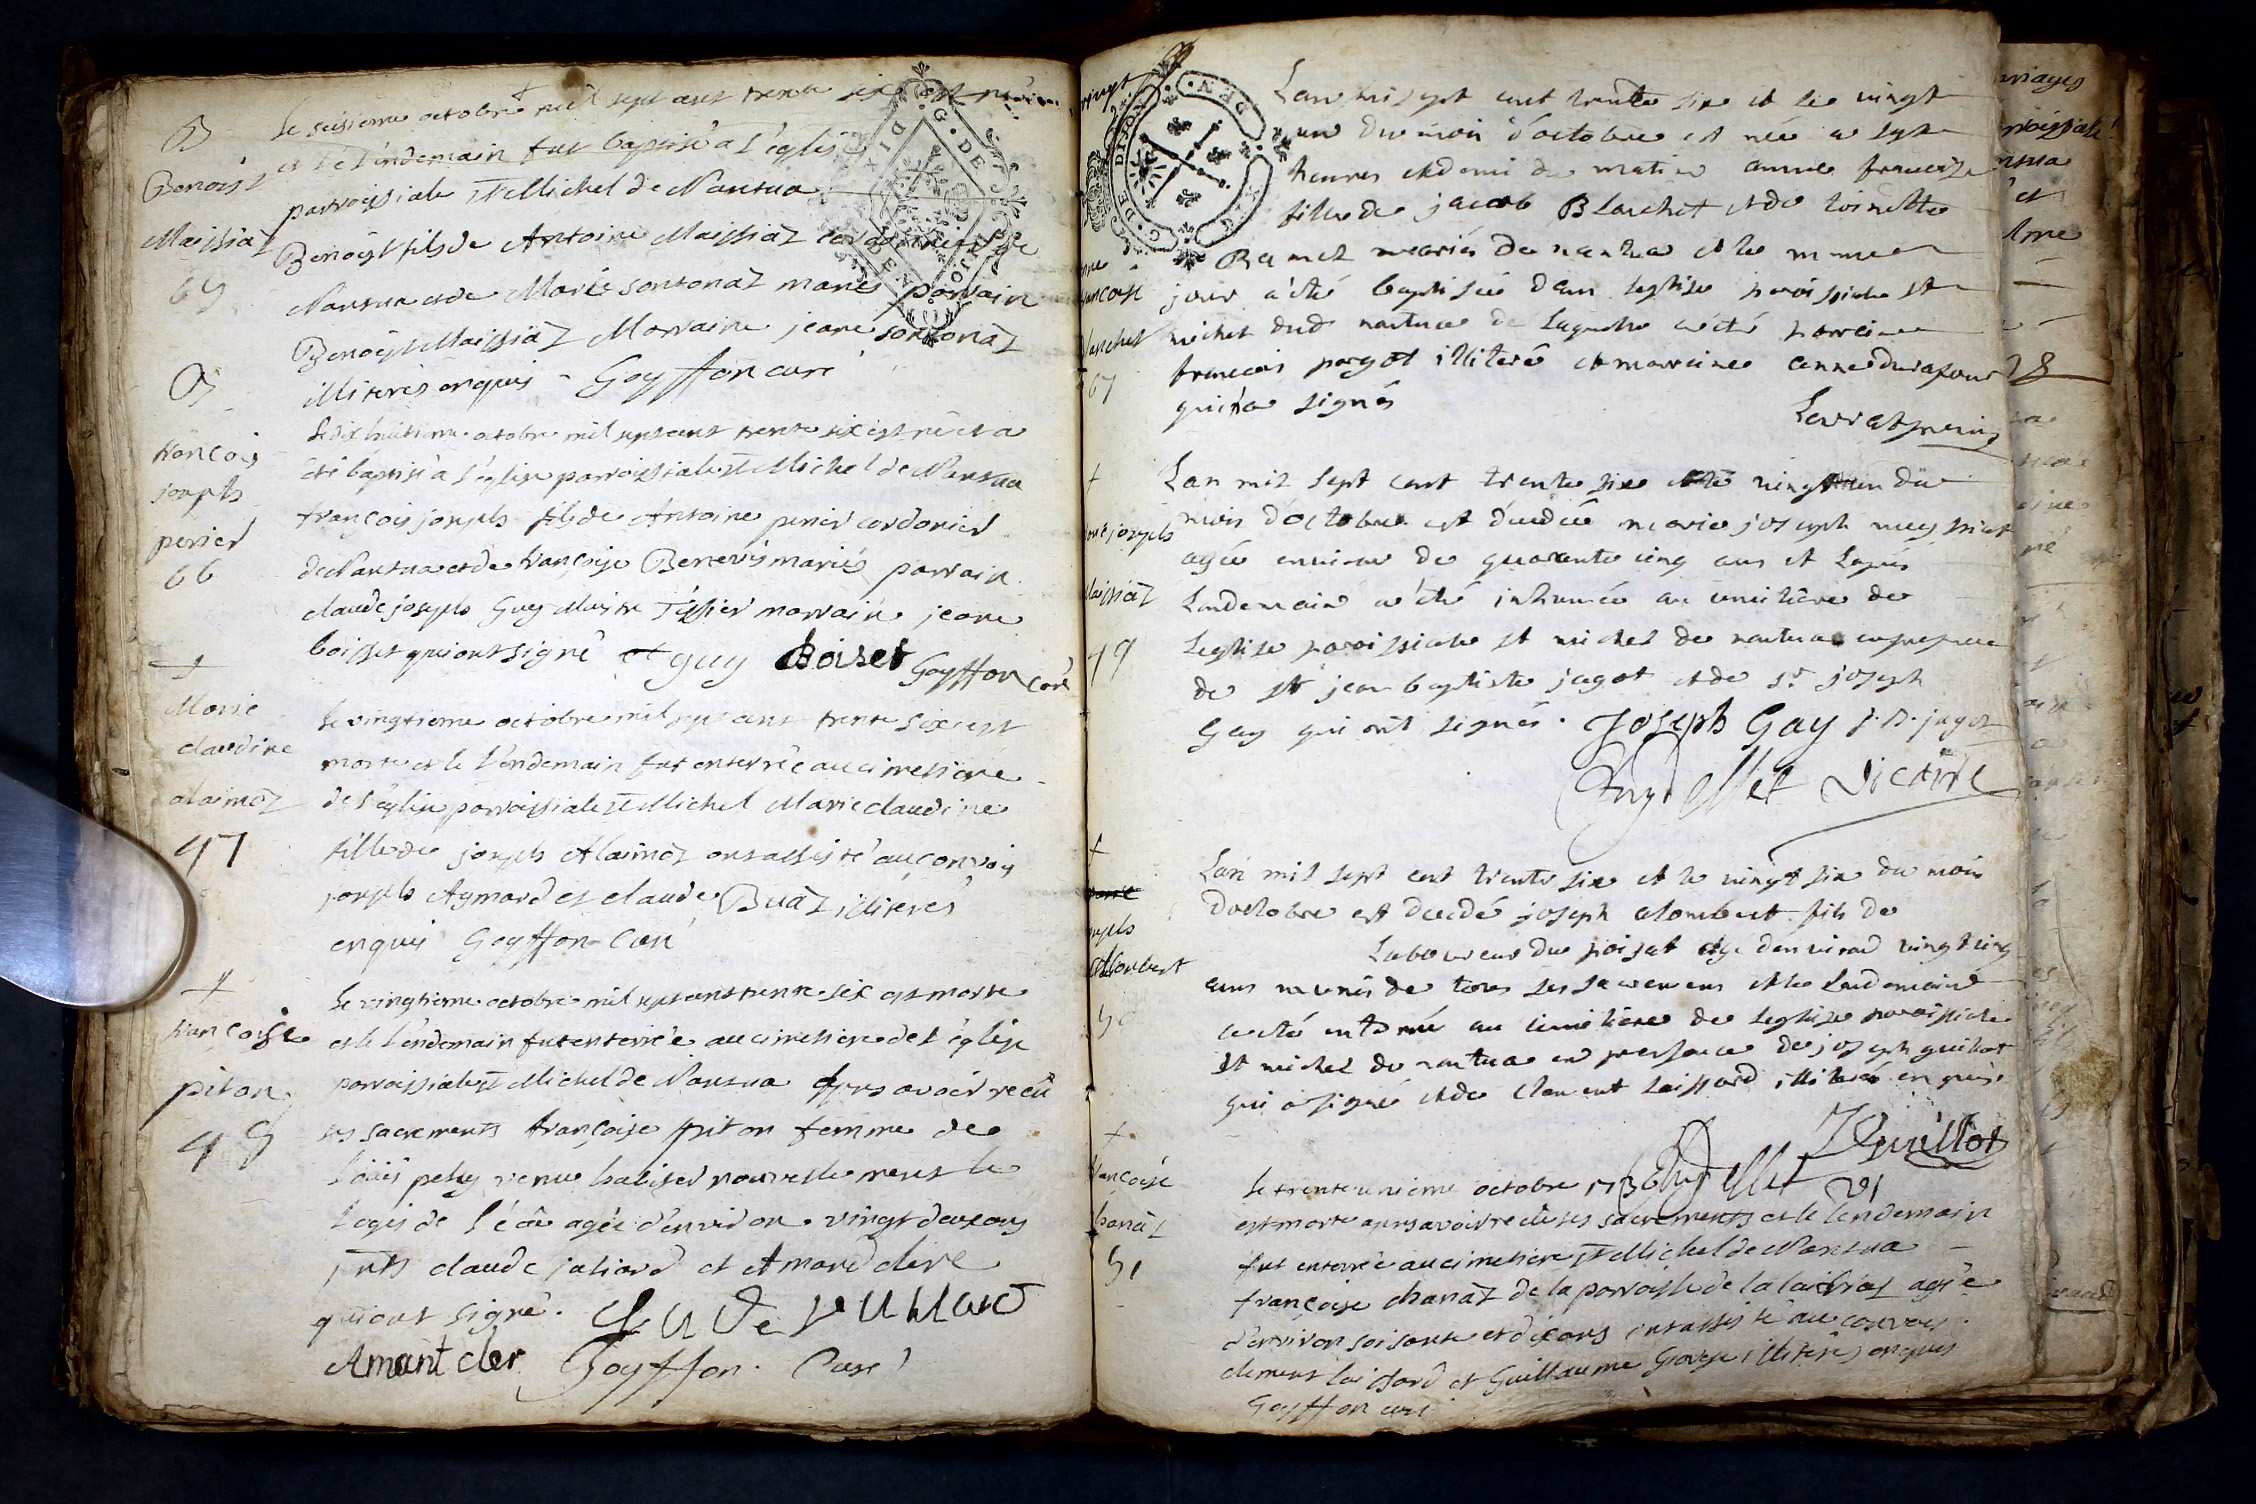 B
Benoist
Maissiaz
65
le seisieme octobre mil sept cent trente six est né
et le l'endemain fut baptisé a l'eglise
parroissiale St Michel de Nantua
Benoist fils de Antoine Maissiaz cordonnier de
Nantua et de Marie sontonaz mariés parrain
Benoist Maissiaz Marraine jeane sontonaz
illiterés enquis - Goyffon curé
B
françois
joseph
perier
66
le dix huitieme octobre mil sept cent trente six est né et a
été baptisé a l'eglise parroissiale St Michel de Nantua
françois joseph fils de Antoine perier cordonier
de Nantua et de françoise Benevis mariés parrain
claude joseph Guy Maitre Tissier marraine jeane
boisset qui ont signé et guy Boiset Goyffon curé
+
Marie
claudine
alaimoz
47
le vingtieme octobre mil sept cent trente six est
morte et le l'endemain fut enterrée au cimetiere
de l'eglise parroissiale St Michel Marie claudine
fille de joseph Alaimoz ont assisté au convoy
joseph Aymard et claude Buaz illiterés
enquis Goyffon Curé
+
francoise
piton
48
le vingtieme octobre mil sept cent trente six est morte
et le l'endemain fut enterrée au cimetiere de l'église
parroissiale St Michel de Nantua apres avoir recu
ses sacrements françoise piton femme de
loüis petey venue habiter nouvellement le
logis de l'écu agée d'environ vingt deux ans
pnts claude juliard et Amard clere
qui ont signé. CLAUDE
Amant cler Goyffon. Curé
françoise
67
L'an mil sept cent trente six et le vingt
un du mois d'octobre est née a sept
heures et demi du matin anne francoise
fille de jacob Blanchet et de toinette
Ramel mariés de nantua et le meme
jour a été baptisée dans leglise paroissiale St
michel dud nantua de laquelle a été parrain
francois pargot illiteré et marraine anne durafour
qui a signés
+
joseph
Maissiaz
49
Lan mil sept cent trente six et le vingt un du
mois d'octobre est decedée marie joseph meyssiat
agée environ de quarante cinq ans et
Landemain a été inhumée au cimetiere de
Leglise paroissiale St michel de nantua en presence
de Sr jean baptiste jagot et de Sr joseph
Gay qui ont signés. Joseph Gay J. B. jagot
vicaire
+
joseph
alombert
50
Lan mil sept cent trente six et le vingt six du mois
doctobre est decedé joseph alombert fils de
Laboureur du poisat agé denviron vingt cinq
ans munis de tous ses sacremens et le landemain
a eté enterré au cimetiere de leglise paroissiale
St michel de nantua en presence de joseph guillot
qui a signé et de Clement Laissard illiteré enquis.
J Guillot
+
francoise
chanaz
51
Le trente unieme octobre 1736
est morte apres avoir recu ses sacrements et le lendemain
fut enterrée au cimetiere St Michel de Nantua
françoise chanaz de la parroisse de la agée
d'environ soisante et dix ans ont assisté au convois
clement laissard et Guillaume illiterés enquis
Goyffon curé